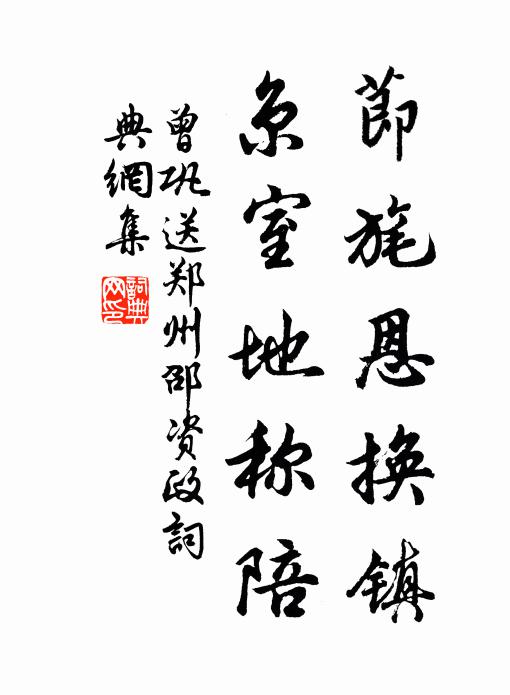 節旄恩換镇
京室地称陪
曾巩送郑州邵资政詞
典網集
詞典网印